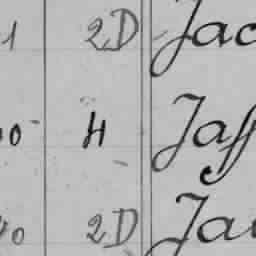 1 2D Jac
0 H Jaff
40 2D Jac